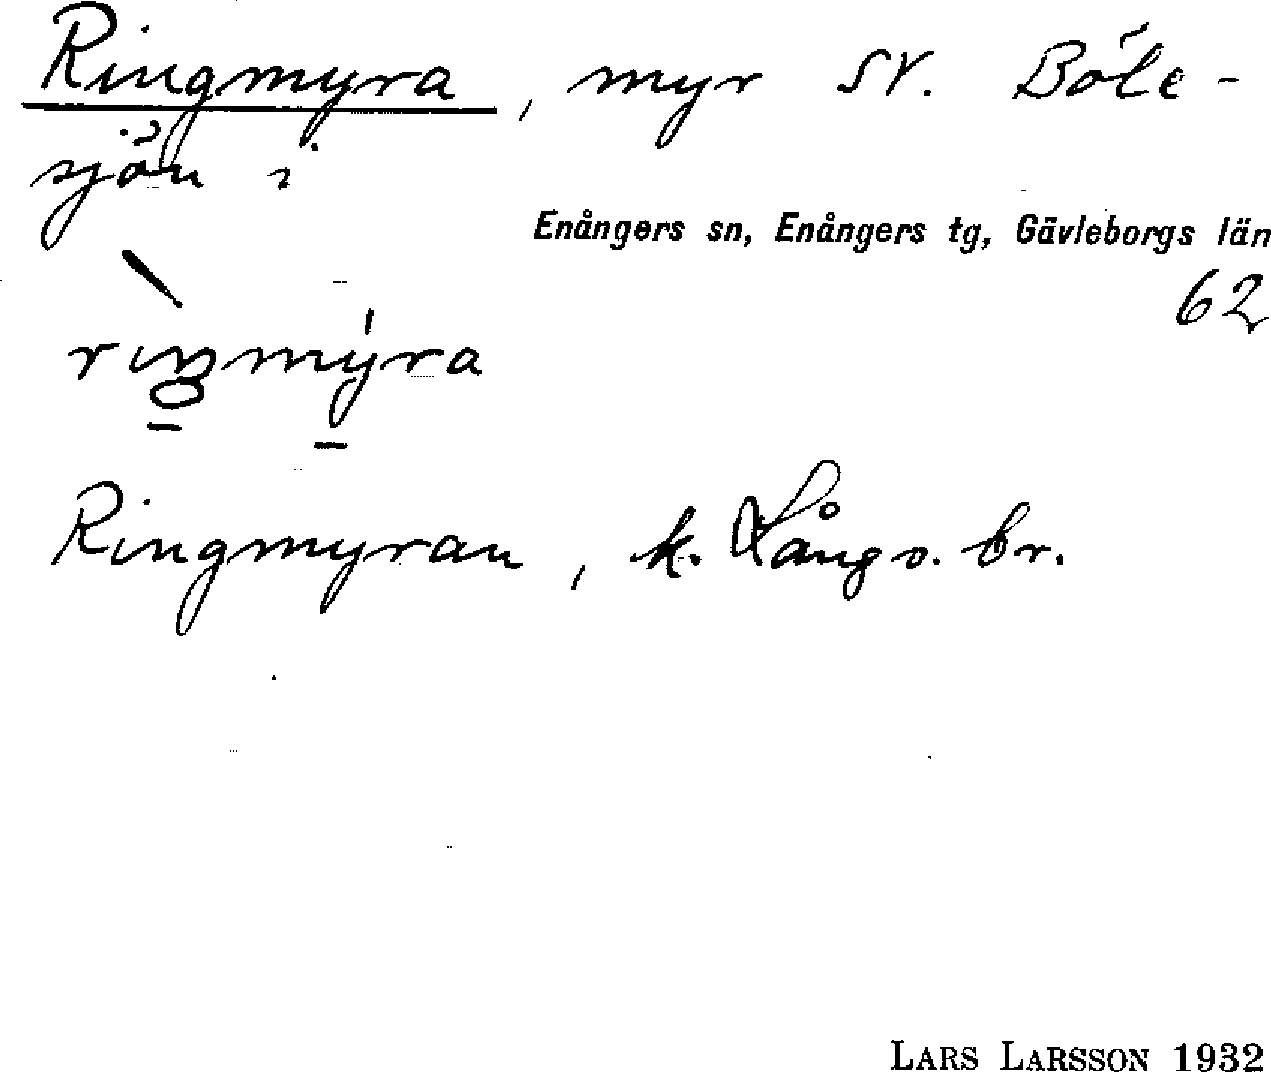 Ringmyra, myr SV. Böle-
sjön i
Enångers sn, Enångers tg, Gävleborgs län
62
rıŋmy̌ra
Ringmyran, k. Långv. br.
LARS LARSSON 1932